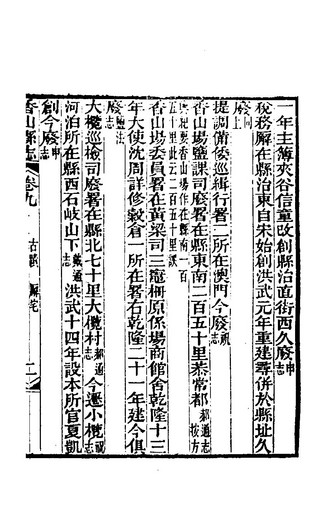 一年主簿夾谷信童改創縣治直街西久廢申志
稅務廨在縣治東自宋始創洪武元年重建尋併於縣址久
廢同上
提調備倭巡緝行署二所在澳門今廢祝志
香山場鹽課司廢署在縣東南二百五十里恭常都郝通志按方
輿紀要香山場作在縣南一百
五十里此云二百五十里誤
香山場委員署在黃梁司三竈柵原係場商館舍乾隆十三
年大使沈周詳修穀倉一所在署右乾隆二十一年建今俱
廢鹽法志
大欖巡檢司廢署在縣北七十里大欖村郝通志今遷小欖祝志
河泊所在縣西石岐山下戴通志洪武十四年設本所官夏凱
創今廢申志
香山縣志
卷九
古蹟
廨宅